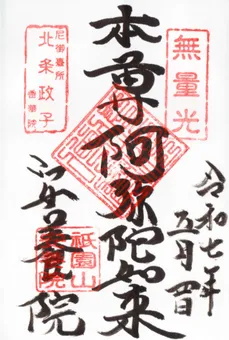 無量光
令和七年
五月四日
本尊阿弥陀如来
尼御臺所
北条政子
香華院
祇園山
安養院